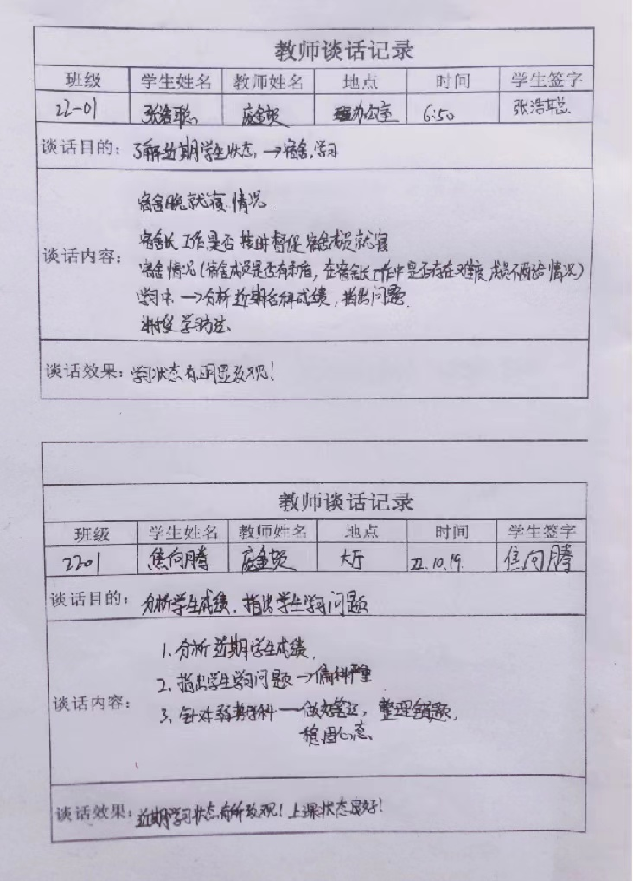 教师谈话记录
班级 学生姓名 教师姓名 地点 时间 学生签字
22-01 张浩聪 办公室 6:50 张浩聪
谈话目的: 了解近期学生状态, →宿舍, 学习
宿舍晚就寝情况
宿舍长工作是否按时督促宿舍成员就寝
谈话内容:
宿舍情况(宿舍成员是否有矛盾, 在宿舍长工作中是否存在难度, 成员不配合情况)
学习中 →分析近期各科成绩, 指出问题.
学习方法.
谈话效果: 学习状态有明显改观!
教师谈话记录
班级 学生姓名 教师姓名 地点 时间 学生签字
2201 焦向腾 大厅 22.10.19. 焦向腾
谈话目的: 分析学生成绩, 指出学生学习问题
1. 分析近期学生成绩.
2. 指出学生学习问题→偏科严重
谈话内容:
3. 针对弱势学科 —做好笔记, 整理错题,
稳固心态.
谈话效果: 近期学习状态有所改观! 上课状态良好!